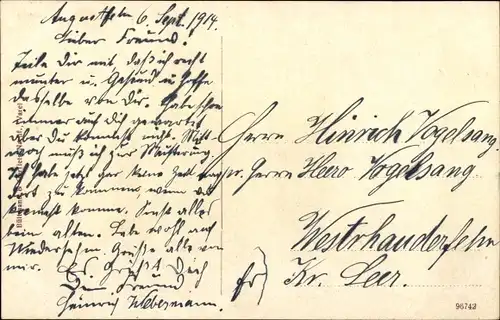 Augustfehn 6. Sept. 1914.
Lieber Freund.
Teile Dir mit, daß ich recht
munter u. Gesund u. hoffe
dasselbe von Dir. Habe schon
immer auf dich gewartet
aber Du kommst nicht. Mitt-
woch muß ich zur Musterung
Ich habe jetzt gar keine Zeit
dort zu kommen, wenn
kommst komme. Sonst alles
beim alten. Lebe wohl auf
Wiedersehn. Grüße alle von
mir. Es Grüßt Dich
Dein Freund
Heinrich
Herrn Hinrich Vogelsang
pr. Herrn Heero Vogelsang
Westrhauderfehn
Kr. Leer.
96742